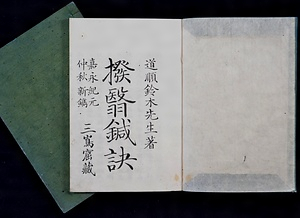 道順鈴木先生著
撥翳鍼訣
嘉永紀元
仲秋新鐫
三嶌窟藏